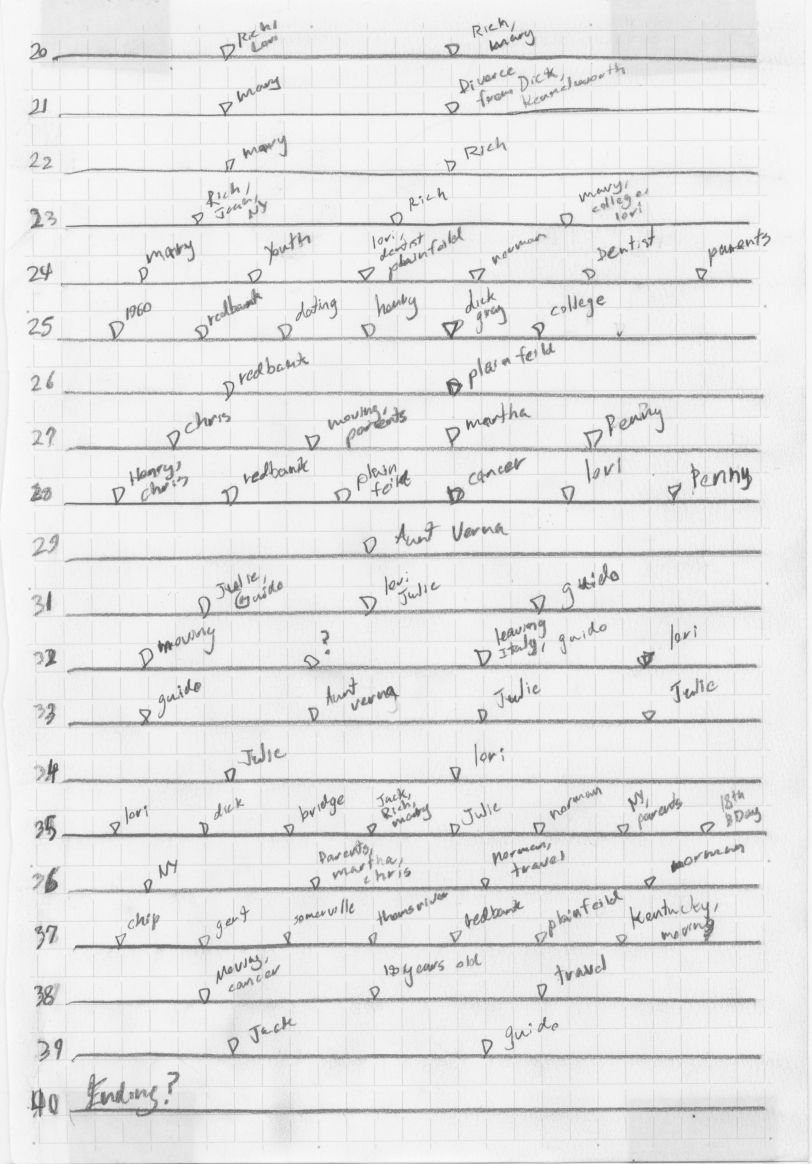 20 Rich, Lori Rich, Mary
21 mary Divorce from Dick,
22 mary Rich
23 Rich, Joan, NY Rich mary, college, lori
24 mary Youth lori, dentist plainfeild norman Dentist parents
25 1960 redbank dating henry dick gray college
26 redbank plainfeild
27 chris moving, parents martha Penny
28 Henry, chris redbank plain feild cancer lori Penny
29 Aunt Verna
31 Julie, Guido lori Julie guido
32 moving ? leaving Italy, guido lori
33 guido Aunt verna Julie Julie
34 Julie lori
35 lori dick bridge Jack, Rich, mary Julie norman NY, parents 18th BDay
36 NY Parents, martha, chris norman, travel norman
37 chip gert somerville thomsriver redbank plainfeild Kentucky, moving
38 Moving, cancer years old travel
39 Jack guido
40 Ending?